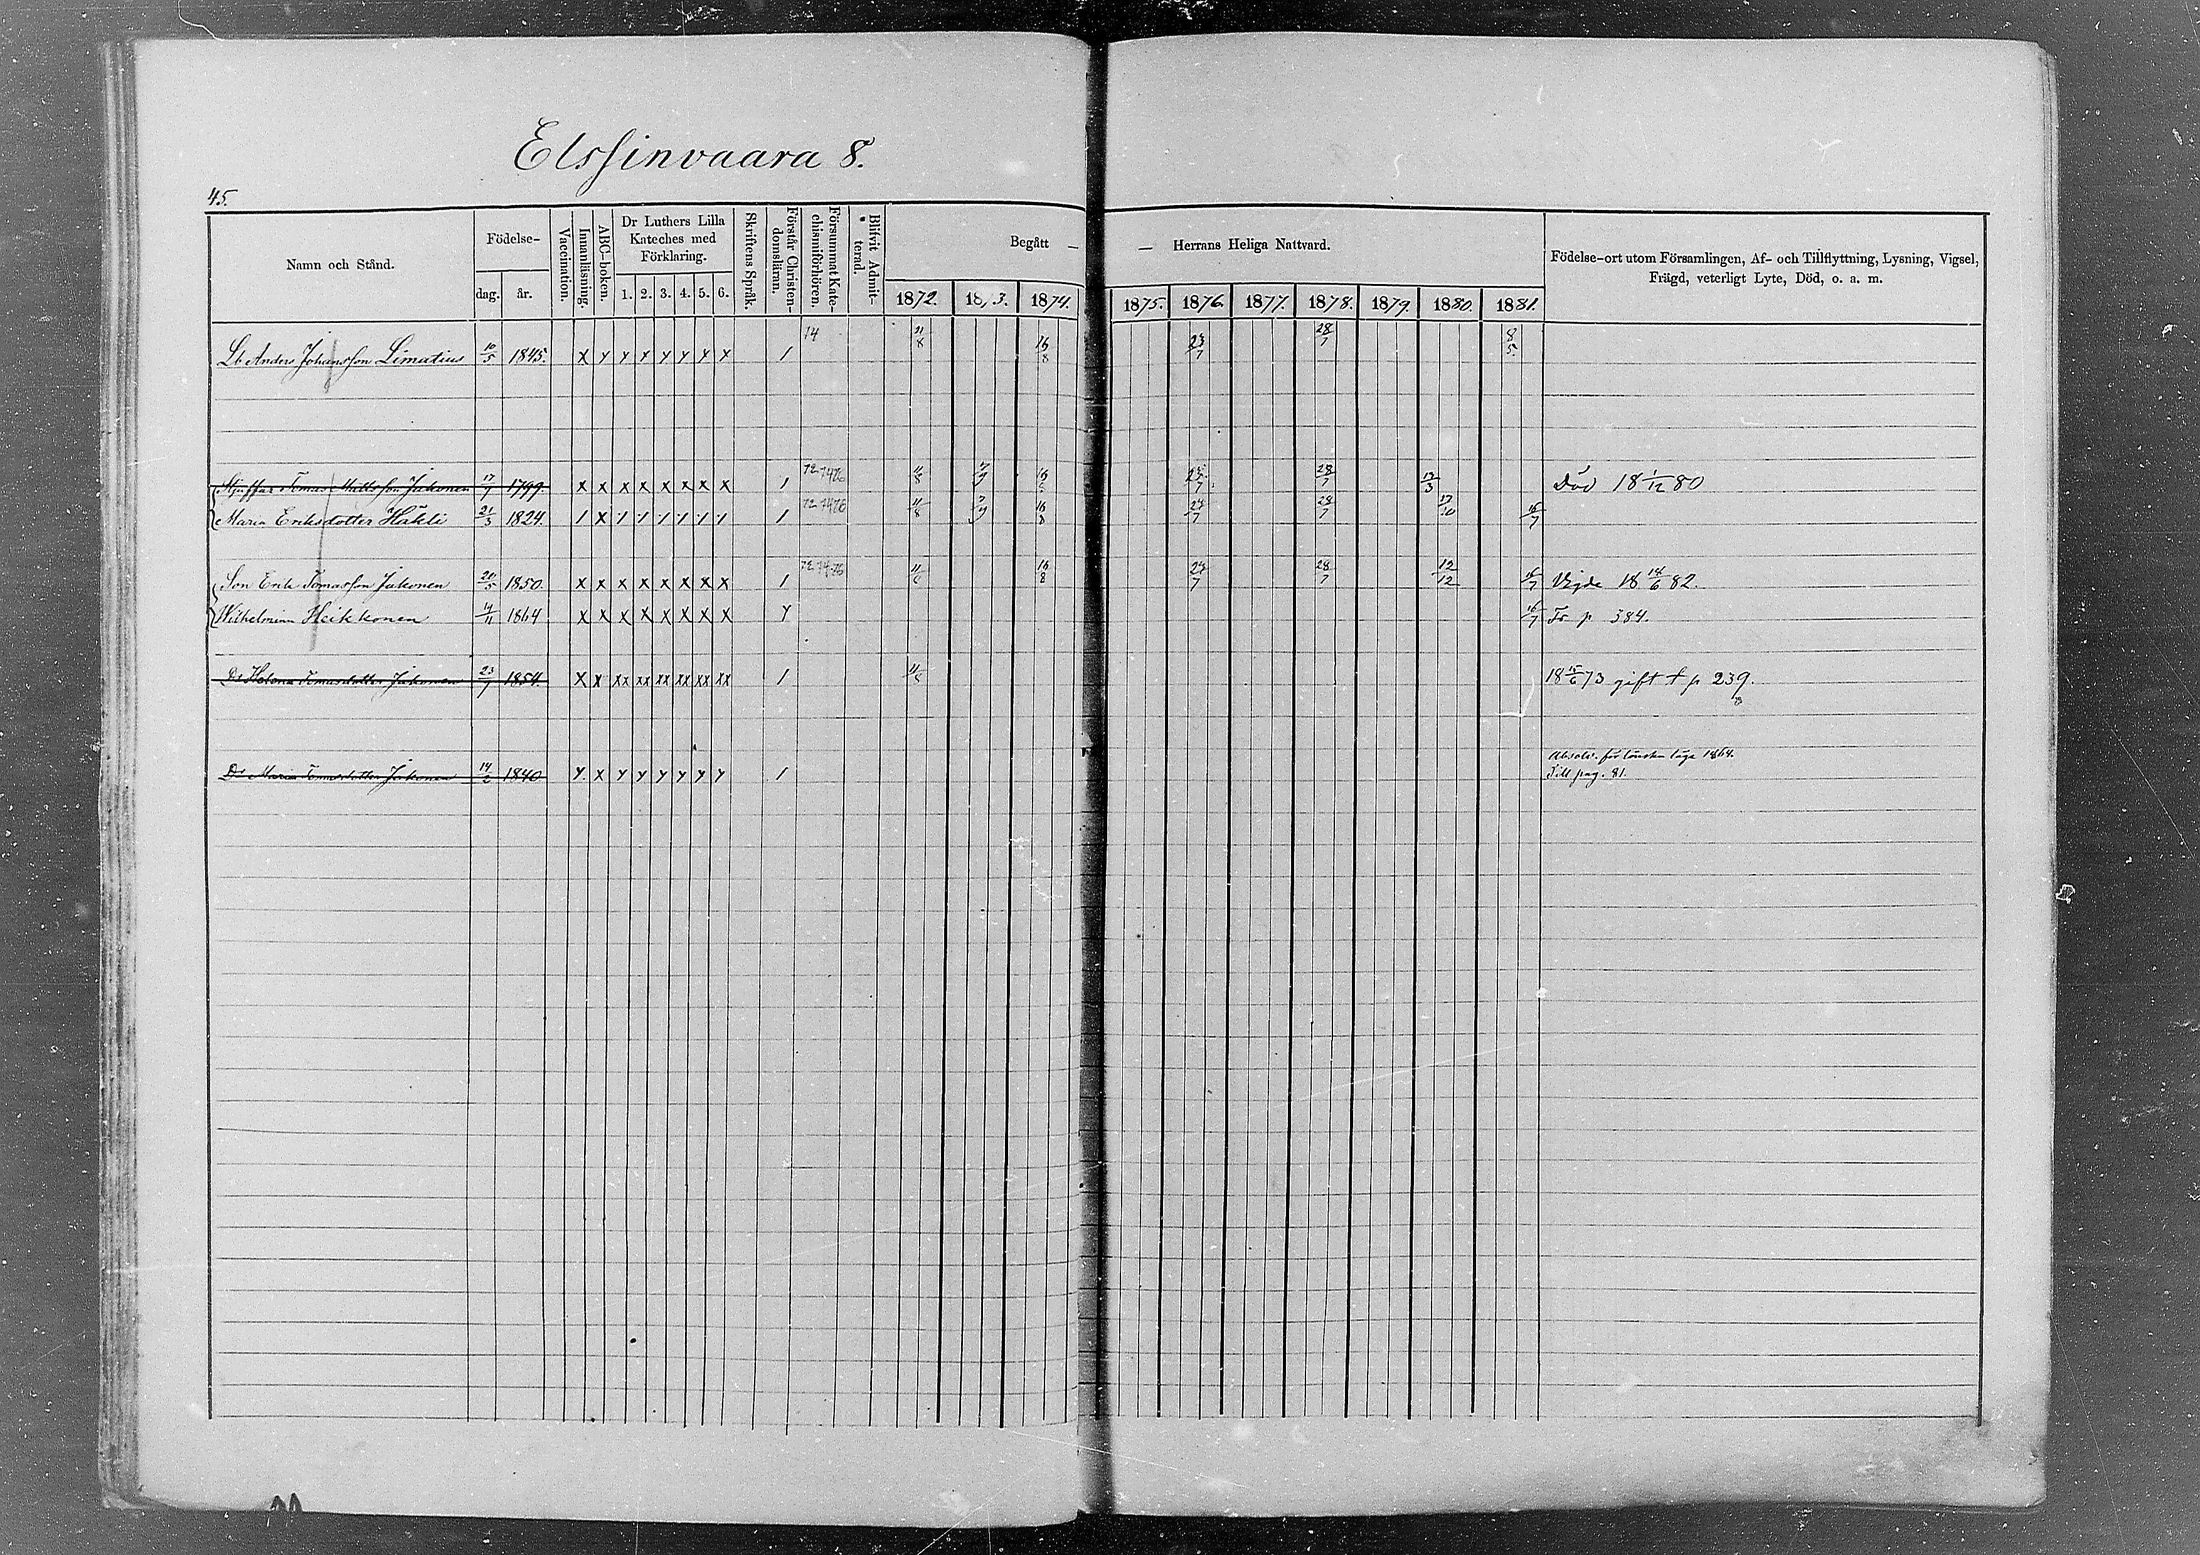 Elssinvaara 8.
45.
Namn och Stånd. Födelse- dag. år. Vaccination. Innanläsning. ABC-boken. Dr Luthers Lilla Kateches med Förklaring. 1. 2. 3. 4. 5. 6. Skriftens Språk. Förstår Christendomsläran. Försummat Katechismiförhören. Blifvit Admitterad. Begått — 1872. 1873. 1874.
— Herrans Heliga Nattvard. 1875. 1876. 1877. 1878. 1879. 1880. 1881. Födelse-ort utom Församlingen, Af- och Tillflyttning, Lysning, Vigsel,
Frägd, veterligt Lyte, Död, o. a. m.
Anders Johansson Limatius 10/5 1845. x y y x y y x x / 14 21/8 16/8 23/7 28/7 8/5
Tomas Mattsson Jakonen 17/7 1799. x x x x x x x x / 72 74 76 11/8 16/8 23/7 28/7 13/3 Död 18 1/12 80
Maria Eriksdotter Häkli 21/3 1824. / x / / / / / / / 72 74 76 11/8 16/8 23/7 28/7 17/10 16/7
Son Erik Tomasson Jakonen 20/5 1850. x x x x x x x x / 72 74 76 11/8 16/8 23/7 28/7 12/12 16/7 Vigde 18 18/6 82.
Wilhelmina Heikkonen 14/11 1864 x x x x x x x x y 16/7 Fr p 384.
Dr Helena Tomasdotter Jakonen 23/7 1854. x x xx xx xx xx xx xx / 11/8 18 15/6 73 gift + p 239.
Absolv. för lönska läge 1864.
Dr Maria Tomasdotter Jakonen 14/2 1840 y x y y y y y y / Till pag. 81.